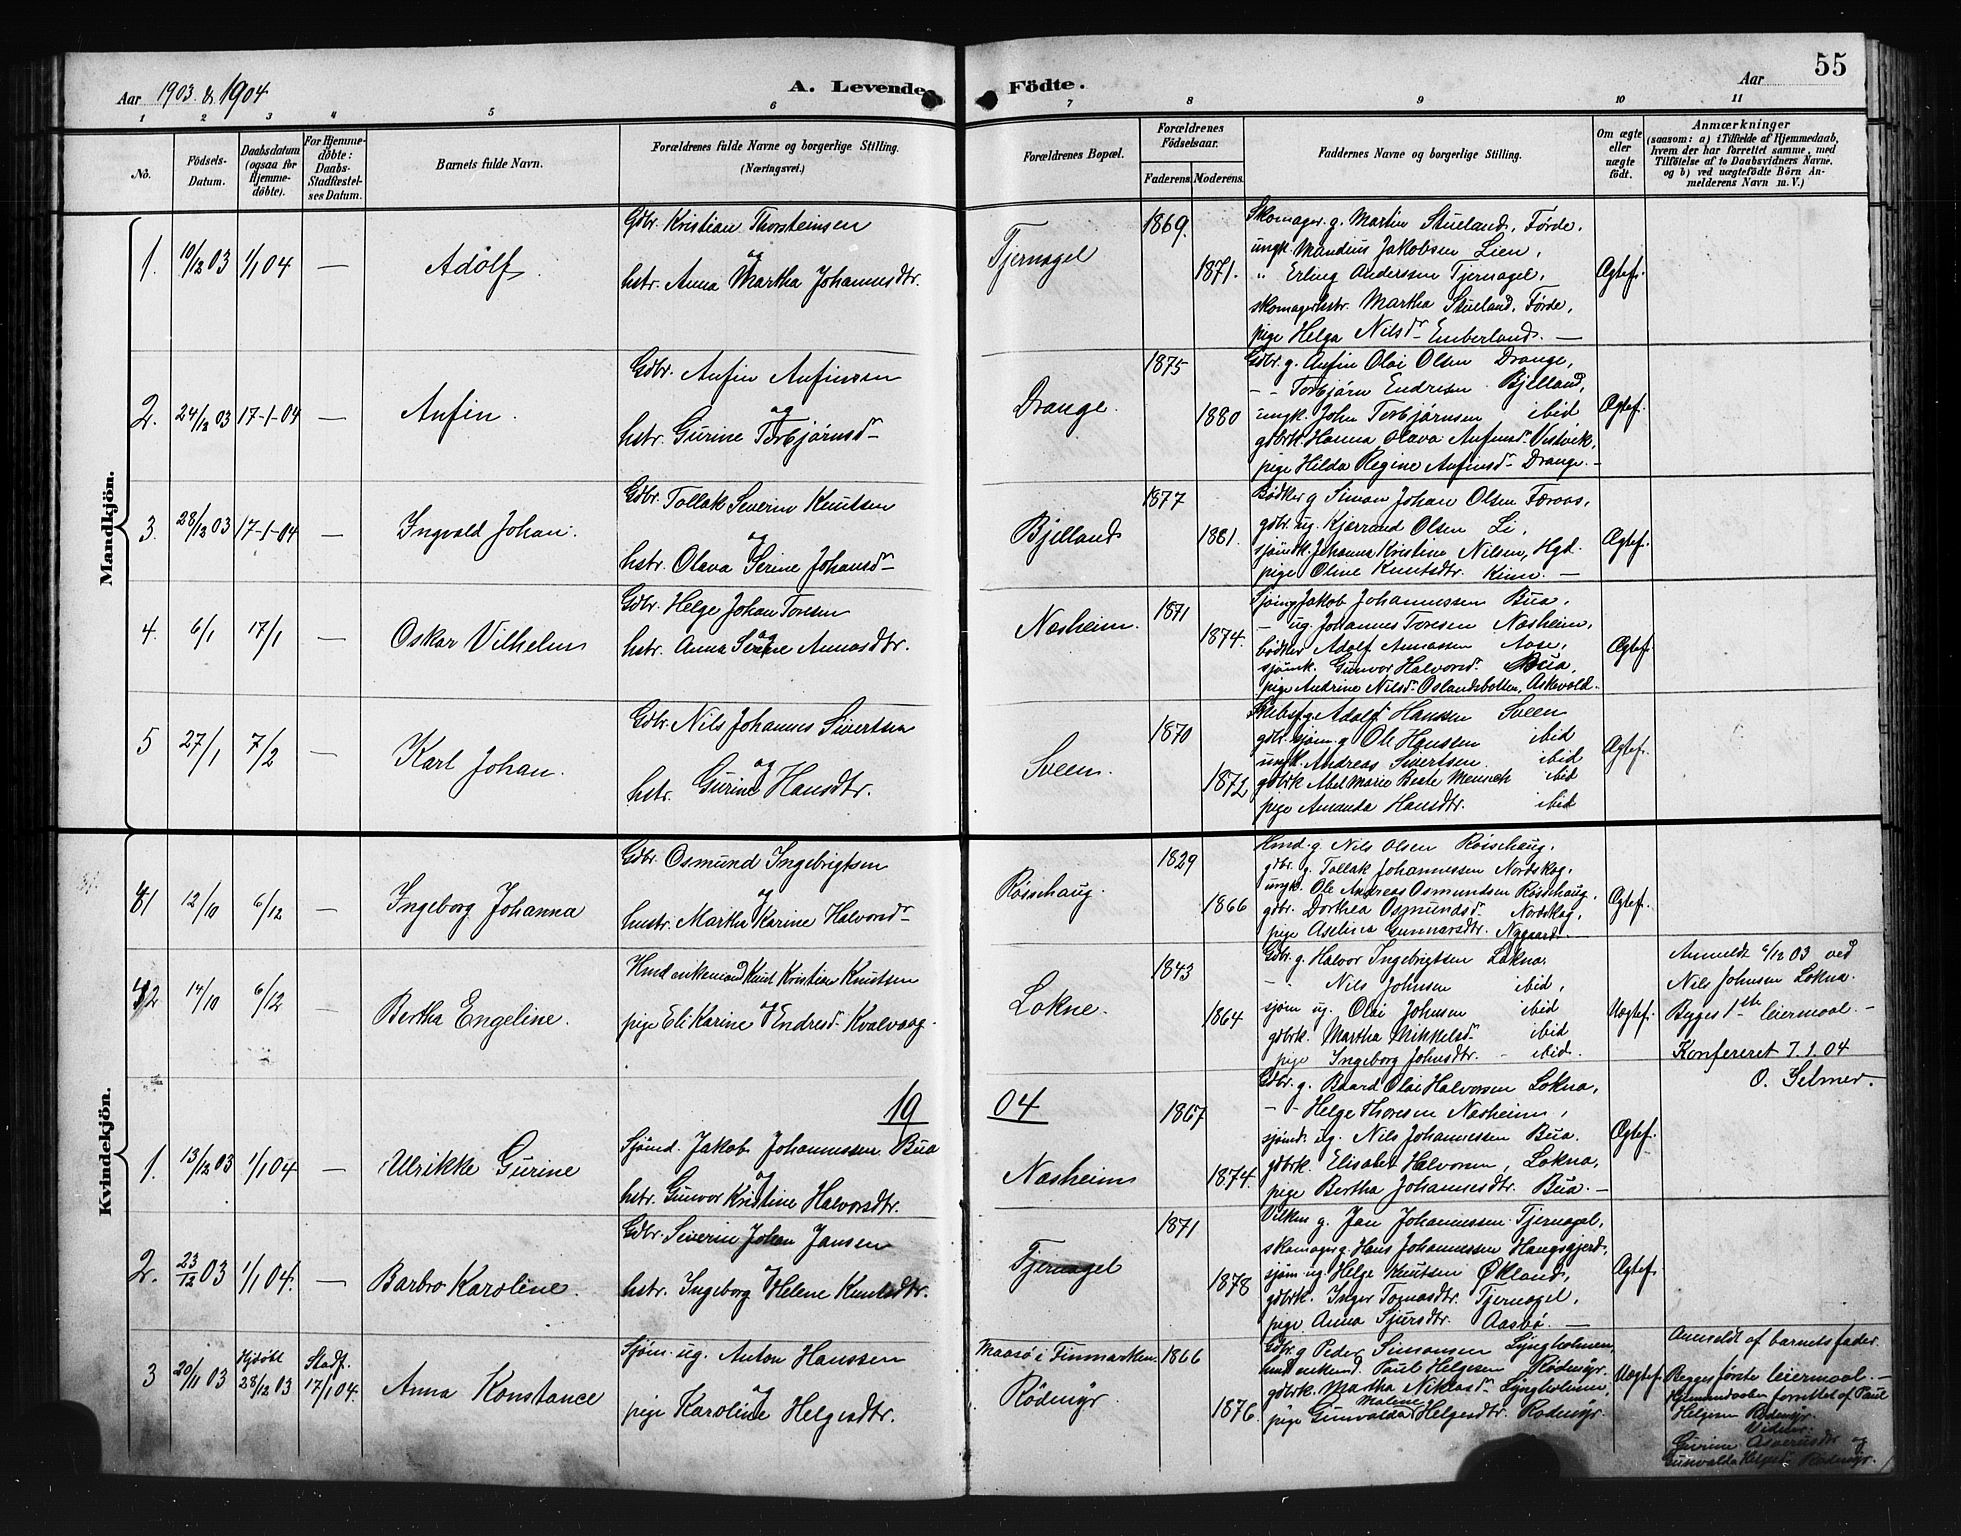 Aar 1903 & 1904
A. Levende Födte.
Aar
55
1 2 3 4 5 6 7 8 9 10 11
No.
Födsels-Datum.
Daabsdatum (ogsaa for Hjemme-döbte).
For Hjemme-döbte: Daabs-Stadfæstel-ses Datum.
Barnets fulde Navn.
Forældrenes fulde Navne og borgerlige Stilling.
(Næringsvei.)
Forældrenes Bopæl.
Forældrenes Födselsaar.
Faderens. Moderens.
Faddernes Navne og borgerlige Stilling.
Om ægte eller uægte födt.
Anmærkninger
(saasom: a) i Tilfælde af Hjemmedaab, hvem der har forrettet samme, med Tilföielse af to Daabsvidners Navne, og b) ved uægtefödte Börn An-melderens Navn m. V.)
Mandkjön.
1. 10/12 03 1/1 04 — Adolf.
Gdbr. Kristian Thorsteinsen
og
hstr. Anna Martha Johannesdtr.
Tjernagel
1869.
1871.
Skomager g. Martin Stueland, Førde,
ungk. Mandius Jakobsen Lien,
" Erling Anderssen Tjernagel,
skomagerhstr. Martha Stueland, Førde,
pige Helga Nilsdr Emberland. —
Ægtef.
2. 24/12 03 17-1-04 — Anfin.
Gdbr. Anfin Anfinsen
og
hstr. Gurine Torbjørnsd-
Drange.
1875
1880
Gdbr. g. Anfin Olai Olsen Drange,
- - Torbjørn Endresen Bjelland,
ungk. John Torbjørnsen ibid
gdbrk. Hanna Olava Anfinsd- Vestvik,
pige Hilda Regine Anfinsd- Drange. —
Ægtef.
3. 28/12 03 17-1-04 — Ingvald Johan.
Gdbr. Tollak Severin Knutsen
og
hstr. Olava Serine Johansd-
Bjelland
1877
1881.
Bødker g Simon Johan Olsen Færaas,
gdbr. ug. Kjerrand Olsen Li,
sjømk. Johanna Kristine Nilsen, Hgd.
pige Oline Knutsdtr. Kinn. —
Ægtef.
4. 6/1 17/1 — Oskar Vilhelm
Gdbr. Helge Johan Toresen
og
hstr. Anna Serine Annasdtr.
Næsheim.
1871
1874.
Jakob Johannessen Bua,
- ug. Johannes Toresen Næsheim,
bødker Adolf Annassen Aase,
sjømk. Gunvor Halvorsd. Bua,
pige Andrine Nilsd- Oslandsbotten, Askevold.
Ægtef.
5 27/1 7/2 — Karl Johan.
Gdbr. Nils Johannes Sivertsen
og
hstr. Gurine Hansdtr.
Sveen.
1870
1872
g. Adolf Hanssen Sveen
gdbr. sjøm. g Ole Hanssen ibid
ungk. Andreas Sivertsen. ibid
gdbrk Abel Marie Beate Meusch ibid
pige Amanda Hansdtr. ibid
Ægtef.
Kvindekjön.
81 12/10 6/12 — Ingeborg Johanna
Gdbr. Osmund Ingebrigtsen
og
hustr. Martha Karine Halvorsdr-
Røisehaug.
1829
1866
Hmd. g. Nils Olsen Røisehaug,
gdbr. g. Tollak Johannessen Nordskog,
ungk. Ole Andreas Osmundsen Røisehaug,
gdbr. Dorthea Osmundsd- Nordskog,
pige Aseline Gunnarsdtr. Nygaard —
Ægtef.
42 14/10 6/12 — Bertha Engeline.
Hmd enkemand Knut Kristian Knutsen
og
pige Eli Karine Endresd- Kvalvaag.
Lokne.
1843
1864
Gdbr. g. Halvor Ingebrigtsen Lokna.
- - Nils Johnsen ibid,
sjøm ug. Olai Johnsen ibid
gdbrk. Martha Mikkelsd- ibid
pige Ingeborg Johnsdtr. - ibid.
Uægtef.
Anmeldt 6/12 03 ved
Nils Johnsen Lokna.
Begges 1ste leiermaal. —
Konfereret 7.1.04
O. Selmer.
1904
1. 13/12 03 1/1 04 — Ulrikke Gurine
Sjømd. Jakob Johannessen Bua
og
hstr. Gunvor Kristine Halvorsdtr.
Næsheim
1867
1874.
Gdbr. g. Baard Olai Halvorsen Lokna,
- - Helge Thoresen Næsheim,
sjømd. ug. Nils Johannessen Bua.
gdbrk. Elisabet Halvorsen, Lokna,
pige Bertha Johannesdtr. Bua. —
Ægtef.
2. 23/12 03 1/1 04. — Barbro Karoline.
Gdbr. Severin Johan Jansen
og
hstr. Ingeborg Helene Knutsdtr.
Tjernagel
1871
1878
g. Jan Johannessen Tjernagel,
skomager g Hans Johannessen Haugsgjerd,
sjøm. ug. Helge Knutsen Økland,
gdbrk. Inger Tomasdtr. Tjernagel,
pige Anna Sjursdtr. Aasbø. —
Ægtef.
3 20/11 03 Hjdöbt 28/12 03 Stadf. 17/1 04. Anna Konstance
Sjøm. ug. Anton Hanssen
og
pige Karoline Helgesdtr.
Maasø i Finmarken.
Rödmyr
1866
1876.
Gdbr. g Peder Simonsen Lyngholmen,
enkemd. Paul Helgesen Rödmyr.
gdbrk. Martha Niklasd- Lyngholmen,
Malene
pige Gunvalda Helgesdtr. Rodmyr.
Uægtef.
Anmeldt af barnets fader.
Begges første leiermaal. —
Hjemmedaaben forrettet af Paul
Helgesen Rödmyr.
Vidner:
Gurine Asserusdtr og
Gunvalda Helgesd. Rödmyr.